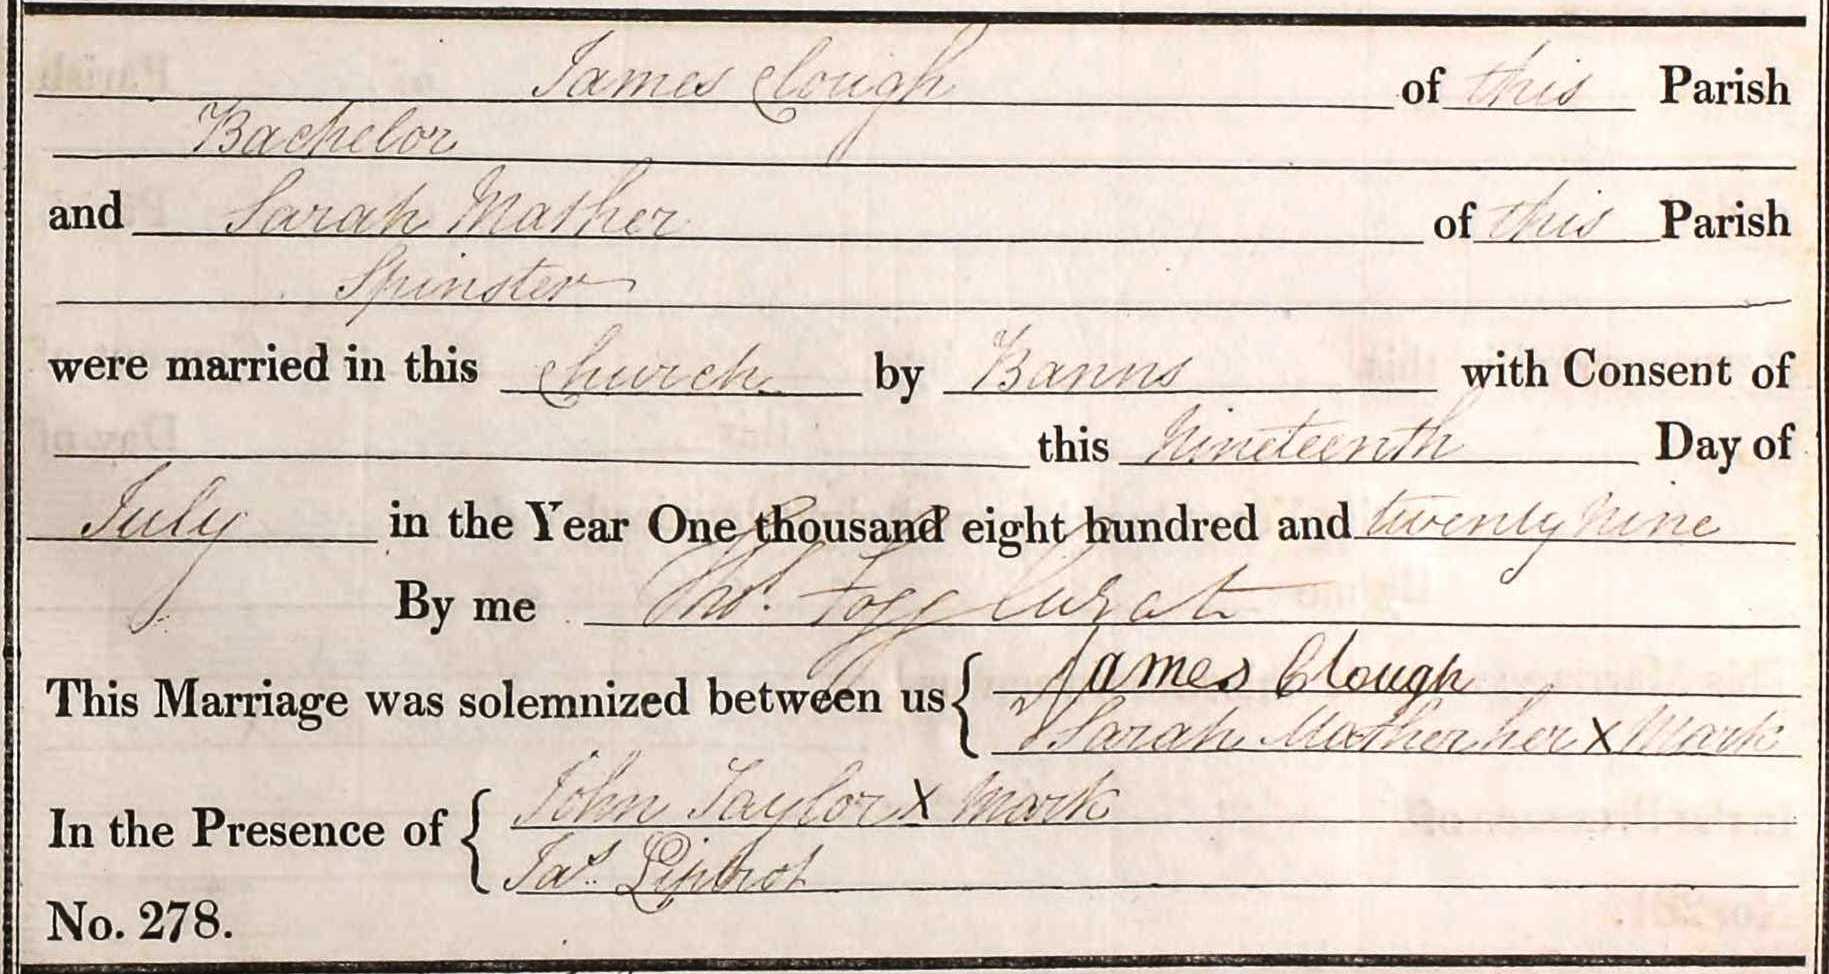 James Clough of this Parish
Bachelor
and Sarah Mather of this Parish
Spinster
were married in this Church by Banns with Consent of
this Nineteenth Day of
July in the Year One thousand eight hundred and twenty nine
By me Thos. Fogg Curate
This Marriage was solemnized between us { James Clough
Sarah Mather her X Mark
In the Presence of { John Taylor X Mark
Jas. Liptrot
No. 278.